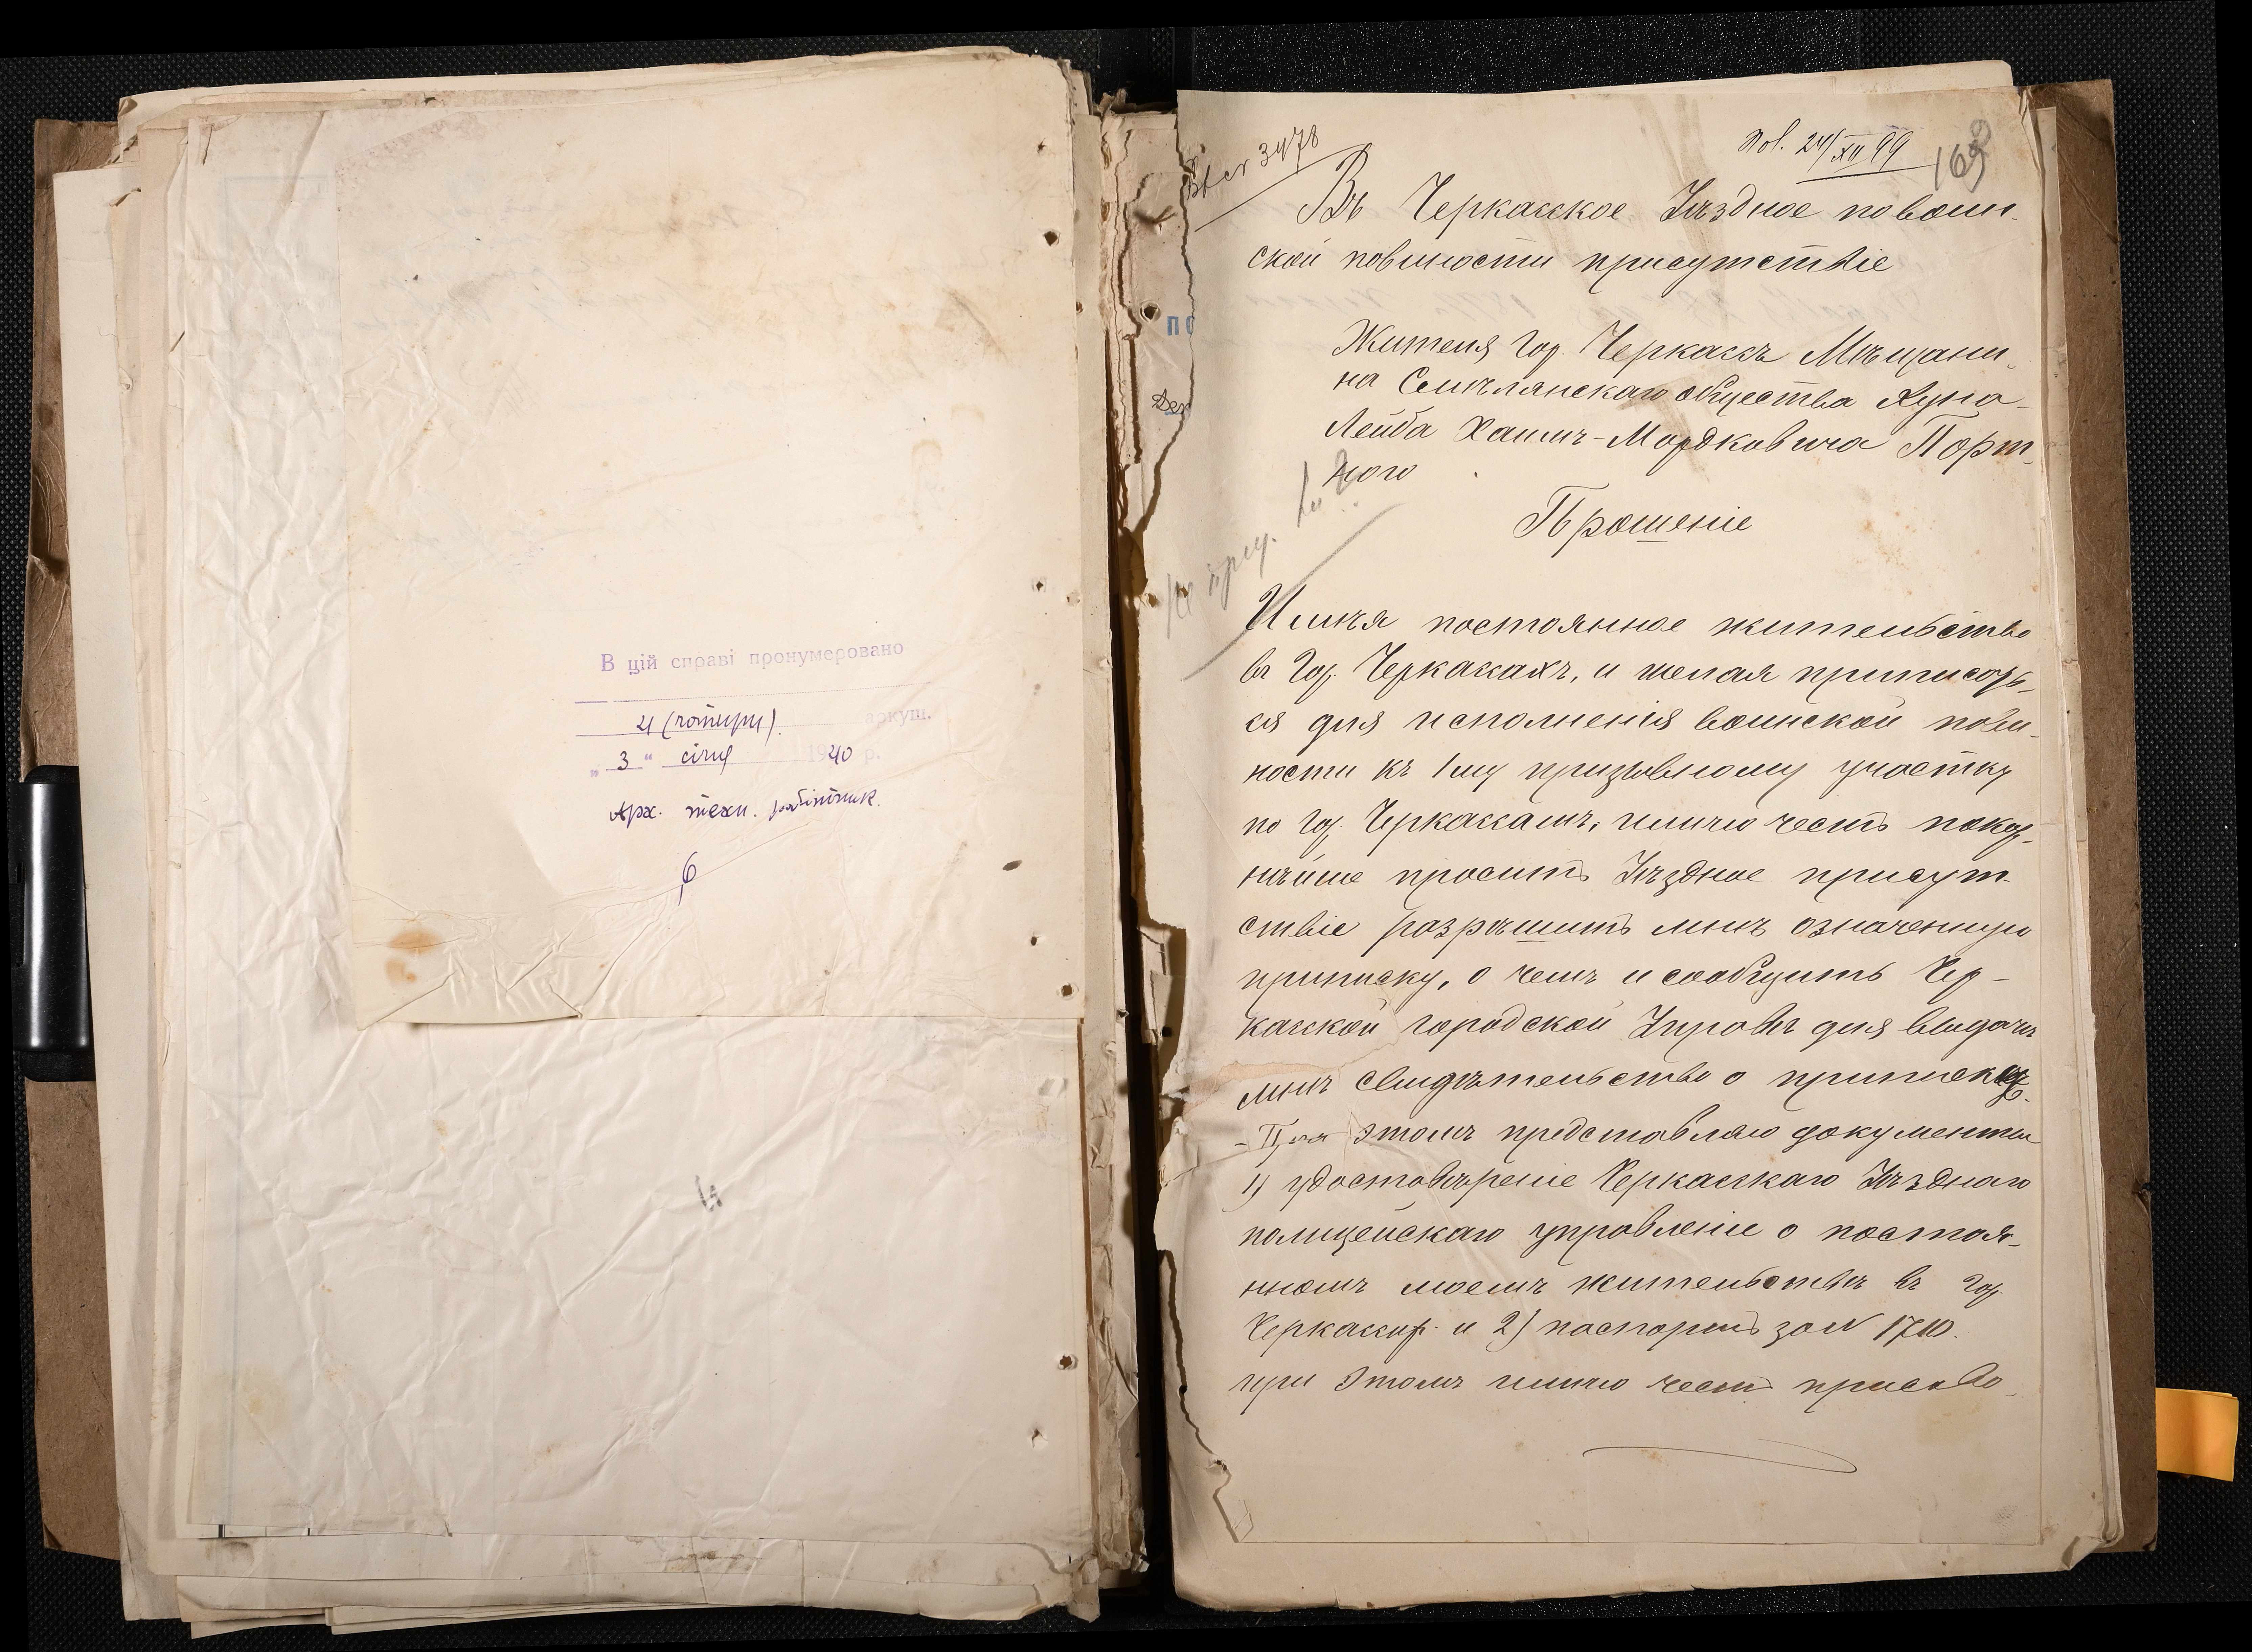 В цій справі пронумеровано
4 (чотири) аркуш.
„ 3 " січня 1940 р.
Арх. техн. робітник
3478
Пол. 24/XII 99
169
Въ Черкасское Уѣздное по воин-
ской повиности присутствіе
Жителя Гор. Черкассъ Мѣщани-
на Смѣлянскаго общества Хуна-
Лейба Хаимъ-Мордковича Порт-
ного
Прошеніе
Имѣя постоянное жительство
въ Гор. Черкасахъ, и желая приписать-
ся для исполненія воинской пови-
ности къ 1му призывному участку
по Гор. Черкассамъ, имѣю честь покор-
нѣйше просить Уѣздное присут-
ствіе разрѣшить мнѣ означенную
приписку, о чемъ и сообщить Чер-
касской городской Управѣ для выдачи
мнѣ свидѣтельство о припискѣ.
- При этомъ представляю документы
1) удостовѣреніе Черкасскаго Уѣзднаго
полицейскаго управленіе о постоя-
нномъ моемъ жительствѣ въ Гор.
Черкассах. и 2) паспортъ за № 1710.
при этомъ имѣю честь присово-